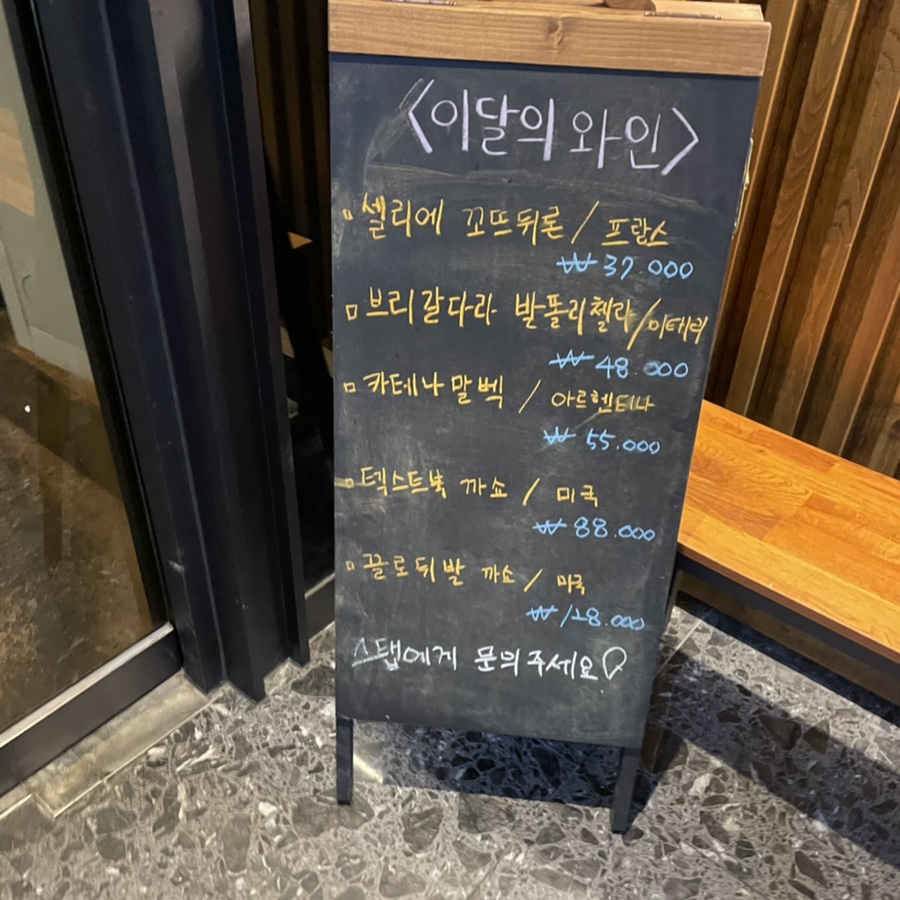 <이달의 와인>
셀리에 꼬뜨뒤론 / 프랑스
₩ 37.000
브리갈다라 발폴리첼라 / 이태리
₩ 48.000
카테나 말벡 / 아르헨티나
₩ 55.000
텍스트북 까쇼 / 미국
₩ 88.000
끌로뒤발 까쇼 / 미국
₩ 128.000
스탭에게 문의주세요